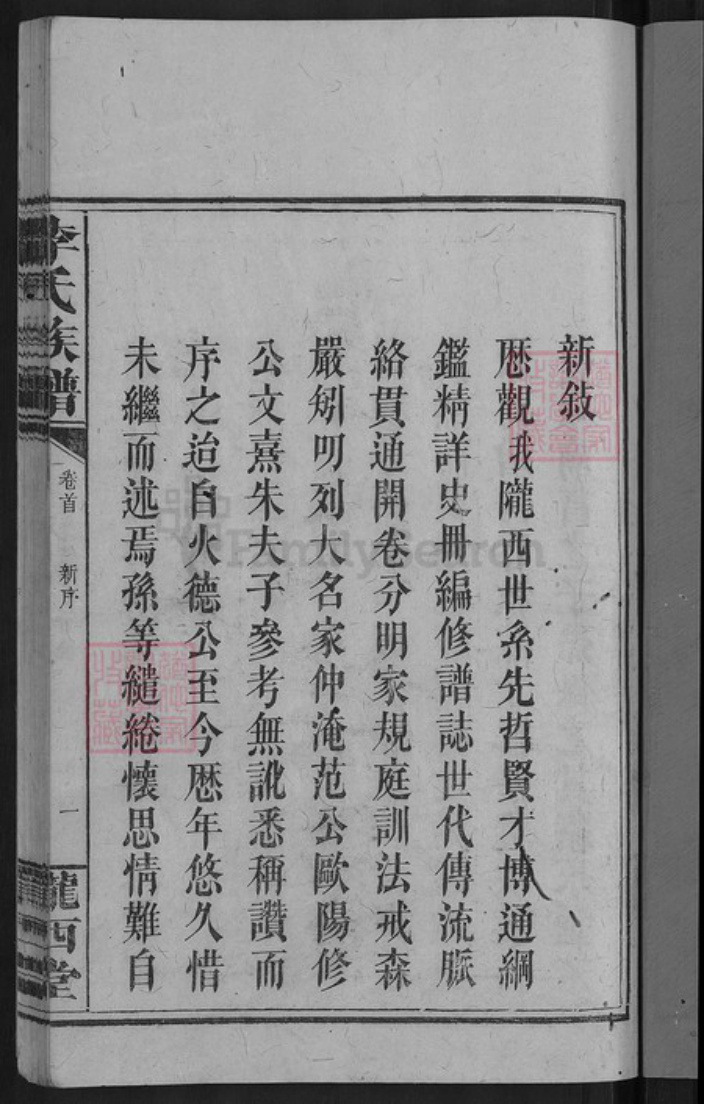 新敍
厯觀我隴西世系先哲賢才博通綱
鑑精詳史冊編修譜誌世代傳流脈
絡貫通開卷分明家規庭訓法戒森
嚴矧叨列大名家仲淹范公歐陽修
公文熹朱夫子參考無訛悉稱讚而
序之迨自火德公至今厯年悠久惜
未繼而述焉孫等繾綣懷思情難自
李氏族譜
卷首
新序
一
隴西堂
FamilySearch